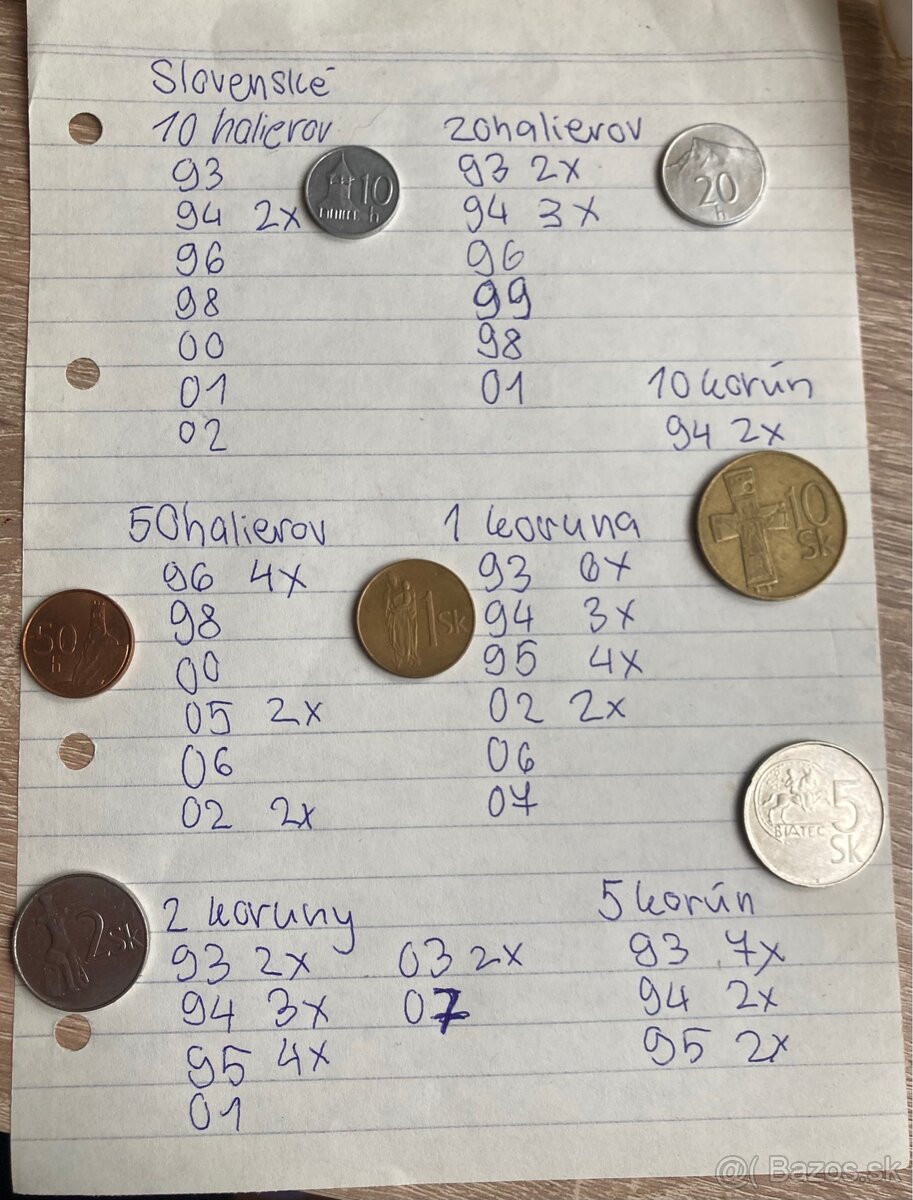 Slovenské
10 halierov
93
94 2x
96
98
00
01
02
10
h
20halierov
93 2x
94 3x
96
99
98
01
20
h
10 korún
94 2x
10
Sk
50halierov
96 4x
98
00
05 2x
06
02 2x
50
h
1 koruna
93 6x
94 3x
95 4x
02 2x
06
07
1 Sk
5
BIATEC
Sk
2 koruny
93 2x
94 3x
95 4x
01
03 2x
07
2 Sk
5 korún
93 7x
94 2x
95 2x
@( Bazos.sk